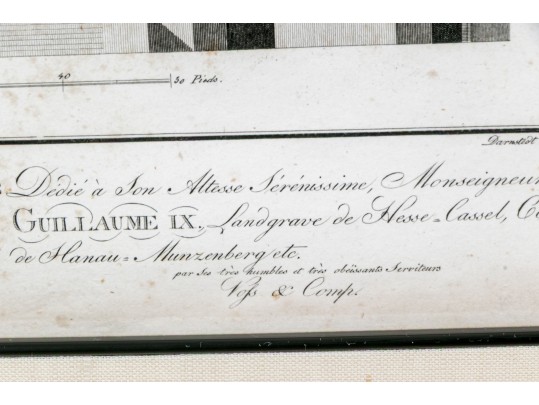 40
50 Pieds.
Darnstedt
Dédié à Son Altesse Sérénissime, Monseigneur
GUILLAUME IX., Landgrave de Hesse=Cassel, Co
de Hanau=Munzenberg etc.
par Ses très humbles et très obéissants Serviteurs
Voſs & Comp.